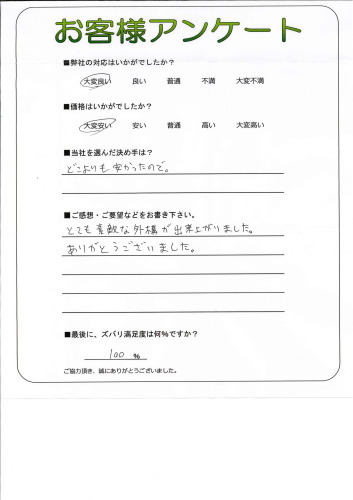 お客様アンケート
■弊社の対応はいかがでしたか？
大変良い 良い 普通 不満 大変不満
■価格はいかがでしたか？
大変安い 安い 普通 高い 大変高い
■当社を選んだ決め手は？
どこよりも安かったので。
■ご感想・ご要望などをお書き下さい。
とても素敵な外構が出来上がりました。
ありがとうございました。
■最後に、ズバリ満足度は何％ですか？
100 %
ご協力頂き、誠にありがとうございました。